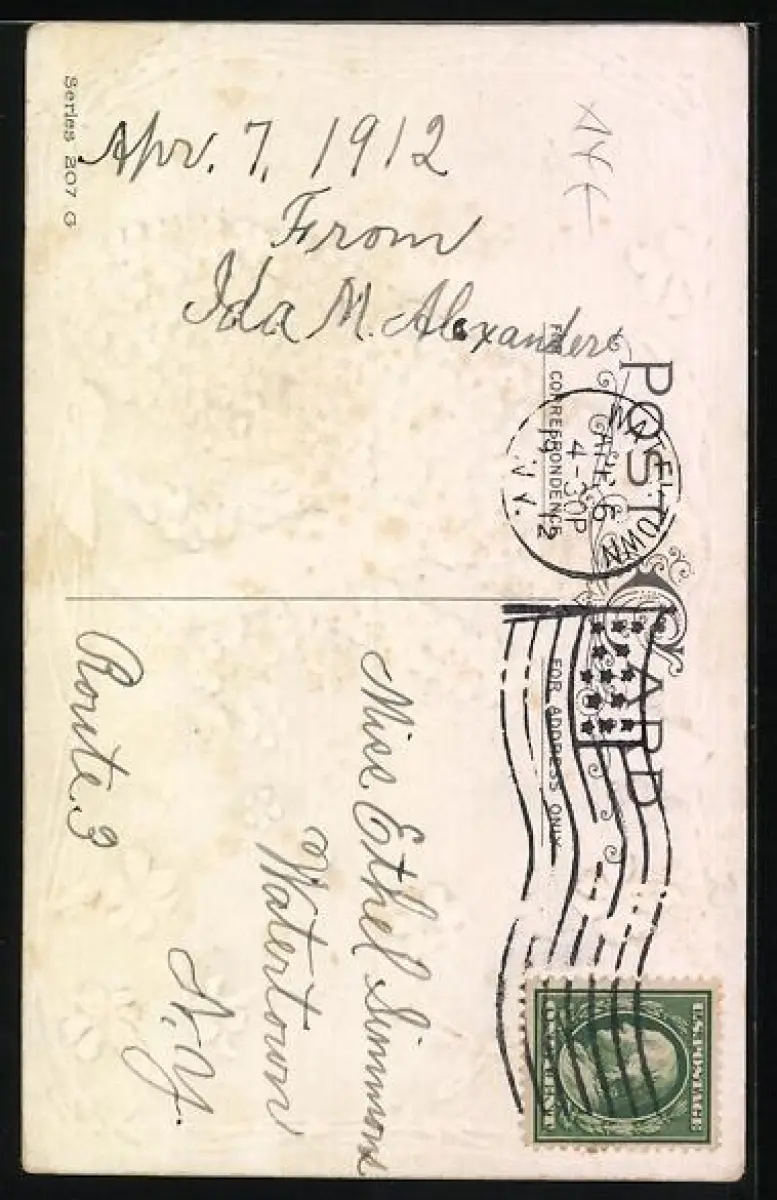 Series 207 G
Apr. 7, 1912
From
Ida M. Alexander
POST CARD
FOR CORRESPONDENCE
FOR ADDRESS ONLY
WATERTOWN
APR 6
4-30P
1912
N.Y.
U.S. POSTAGE
Miss. Ethel Simmons
Watertown
N.Y.
Route. 3